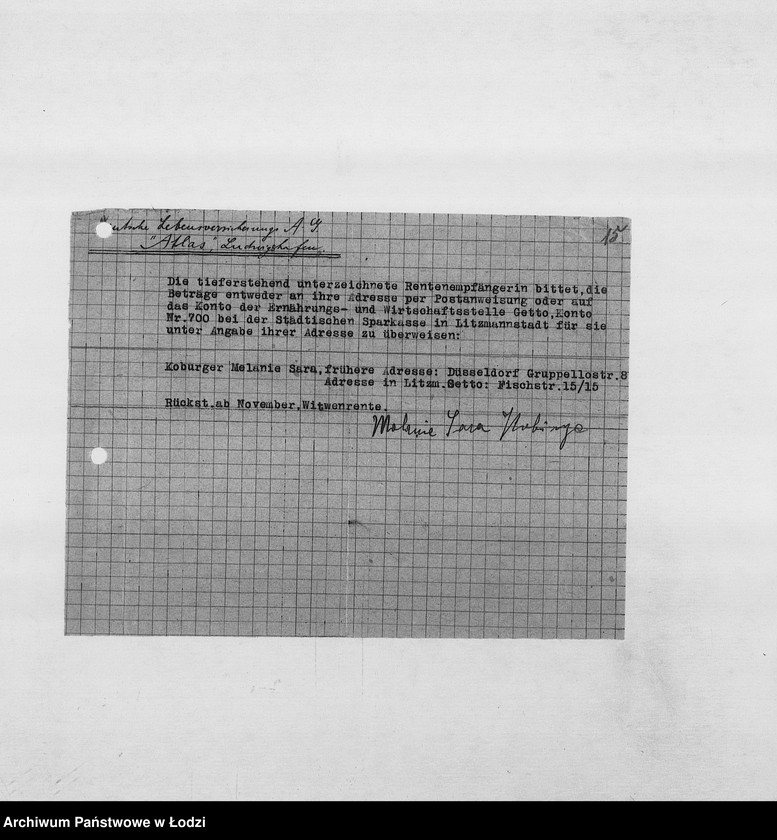 Deutsche Lebensversicherungs A. G.
"Atlas", Ludwigshafen.
15
Die tieferstehend unterzeichnete Rentenempfängerin bittet,die
Beträge entweder an ihre Adresse per Postanweisung oder auf
das Konto der Ernährungs- und Wirtschaftsstelle Getto,Konto
Nr.700 bei der Städtischen Sparkasse in Litzmannstadt für sie
unter Angabe ihrer Adresse zu überweisen:
Koburger Melanie Sara,frühere Adresse: Düsseldorf Gruppellostr.8
Adresse in Litzm.Getto: Fischstr.15/15
Rückst.ab November,Witwenrente.
Melanie Sara Koburger
Archiwum Państwowe w Łodzi